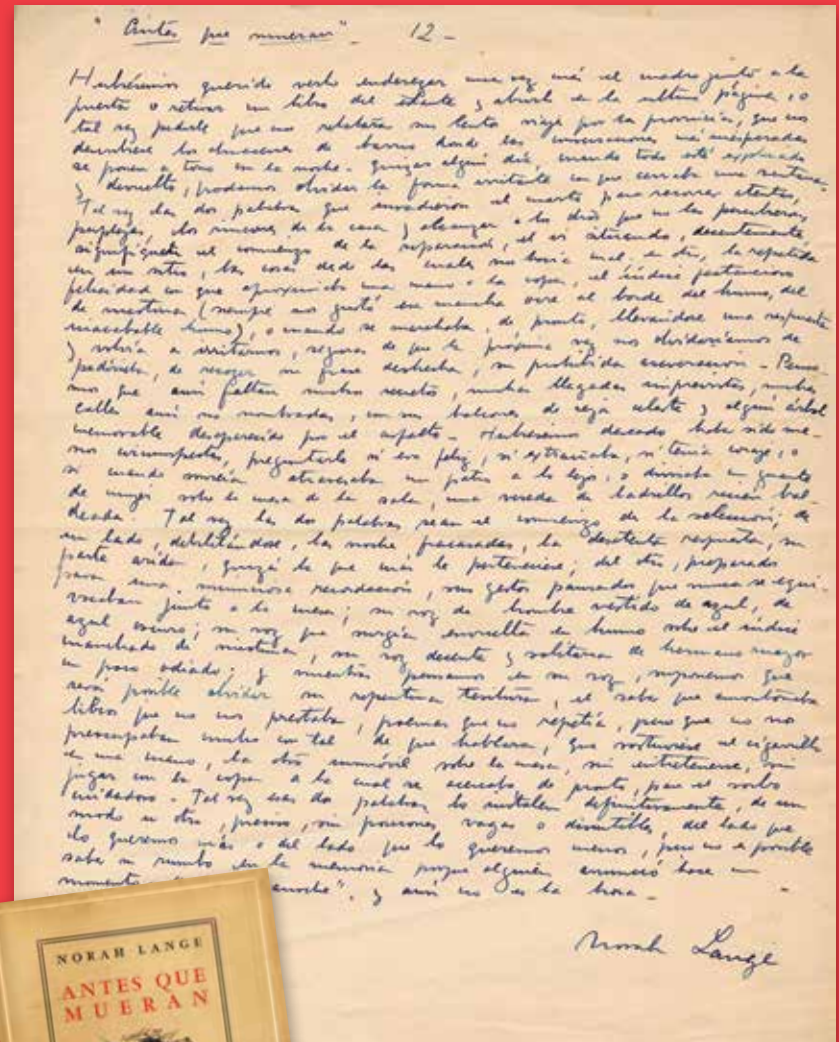 "Antes que mueran" 12 -
Hubiéramos querido verlo enderezar una vez más el cuadro junto a la
puerta o retirar un libro del estante y abrirlo en la última página, o
tal vez pedirle que nos relatara su lento viaje por la provincia, que nos
describiese los almacenes de barrio donde las conversaciones más inesperadas
se ponen a tono con la noche. Quizás algún día, cuando todo esté explicado
y devuelto, podamos olvidar la forma irritante en que cerraba una ventana.
Tal vez las dos palabras que invadieron el cuarto para recorrer atentas,
perplejas, los rincones de la casa y alcanzar a los días que no las
signifiquen el comienzo de la separación, el ir situando, decentemente,
en un sitio, las cosas desde las cuales nos hacía mal, en otro, la repetida
felicidad con que aproximaba una mano a la copa, el índice
de nicotina (siempre nos gustó esa mancha ocre al borde del humo, del
inacabable humo), o cuando se marchaba, de pronto, llevándose una respuesta
y volvía a irritarnos, seguras de que la próxima vez nos olvidaríamos de
pedírsela, de recoger su frase deshecha, su prohibida - Pensa-
mos que aún faltan muchos secretos, muchas llegadas imprevistas, muchas
calles aún no nombradas, con sus balcones de reja celeste y algún árbol
memorable desaparecido por el asfalto - Hubiésemos deseado haber sido me-
nos circunspectas, preguntarle si era feliz, si extrañaba, si tenía coraje, o
si cuando moría atravesaba un patio a lo lejos, o divisaba un guante
de mujer sobre la mesa de la sala, una vereda de ladrillos recién bal-
deada. Tal vez las dos palabras sean el comienzo de la selección; de
un lado, debilitándose, las noches fracasadas, la desatenta respuesta, su
parte árida, quizá la que más le perteneciese; del otro, preparados
para una minuciosa recordación, sus gestos pausados que nunca se equi-
vocaban junto a la mesa; su voz de hombre vestido de azul, de
azul oscuro; su voz que surgía envuelta en humo sobre el índice
manchado de nicotina, su voz decente y solitaria de hermano mayor
un poco odiado; y mientras pensamos en su voz, suponemos que
será posible olvidar su repentina ternura, el saber que amontonaba
libros que no nos prestaba, poemas que no repetía, pero que no nos
preocupaban mucho con tal de que hablara, que sostuviese el cigarrillo
en una mano, la otra inmóvil sobre la mesa, sin entretenerse, sin
jugar con la copa a la cual se acercaba de pronto, para el sorbo
cuidadoso - Tal vez esas dos palabras lo instalen definitivamente, de un
modo u otro, preciso, sin posiciones vagas o discutibles, del lado que
lo queremos más o del lado que lo queremos menos, pero no es posible
saber su rumbo en la memoria porque alguien anunció hace un
momento anoche", y aún no es la hora -
Norah Lange
NORAH LANGE
ANTES QUE
MUERAN